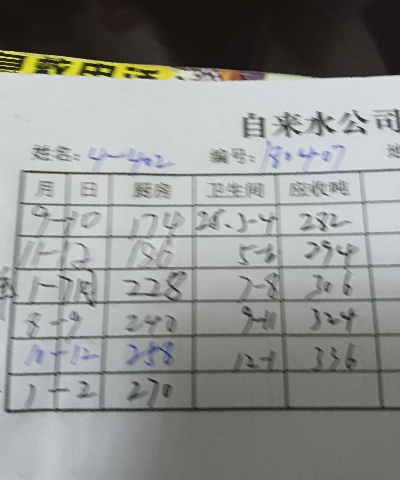 急救电话
自来水公司
姓名: 4-402 编号: 1804407
月 日 厨房 卫生间 应收吨
9-10 174 28.3-4 282
11-12 186 5-6 294
1-7 228 7-8 306
8-9 240 9-11 324
10-12 258 12-1 336
1-2 270